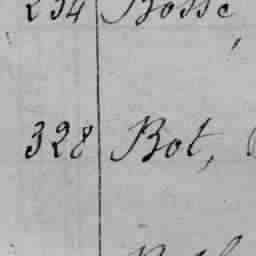 234 Bosse,
328 Bot,